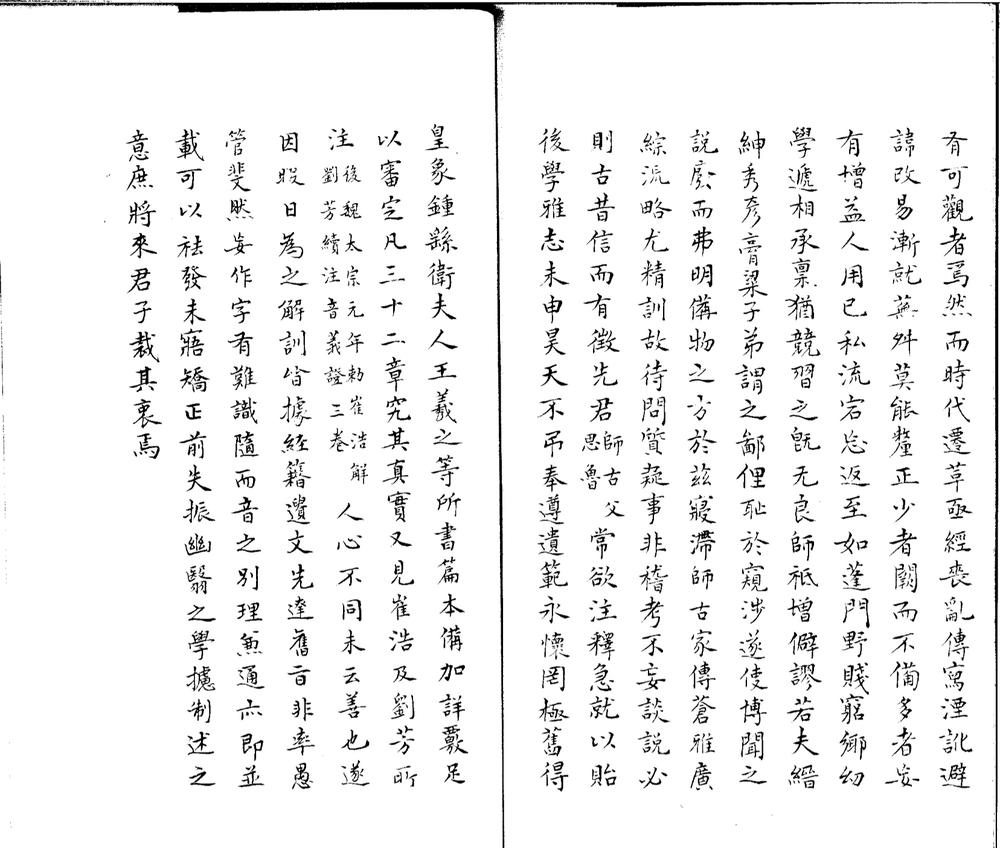 有可觀者焉然而時代遷革亟經喪亂傳寫湮訛避
諱改易漸就蕪舛莫能釐正少者闕而不備多者妄
有增益人用己私流宕忘返至如蓬門野賤窮鄉幼
學遞相承稟猶競習之旣无良師祇增僻謬若夫縉
紳秀彥膏粱子弟謂之鄙俚耻於窺涉遂使博聞之
說廢而弗明備物之方於茲寢滯師古家傳蒼雅廣
綜流略尤精訓故待問質疑事非稽考不妄談說必
則古昔信而有徵先君師古父思魯常欲注釋急就以貽
後學雅志未申昊天不弔奉遵遺範永懷罔極舊得
皇象鍾繇衛夫人王羲之等所書篇本備加詳覈足
以審定凡三十二章究其真實又見崔浩及劉芳所
注後魏太宗元年勅崔浩解劉芳續注音義證三卷人心不同未云善也遂
因暇日為之解訓皆據經籍遺文先達舊旨非率愚
管斐然妄作字有難識隨而音之別理兼通亦即並
載可以袪發未寤矯正前失振幽翳之學攄制述之
意庶將來君子裁其衷焉